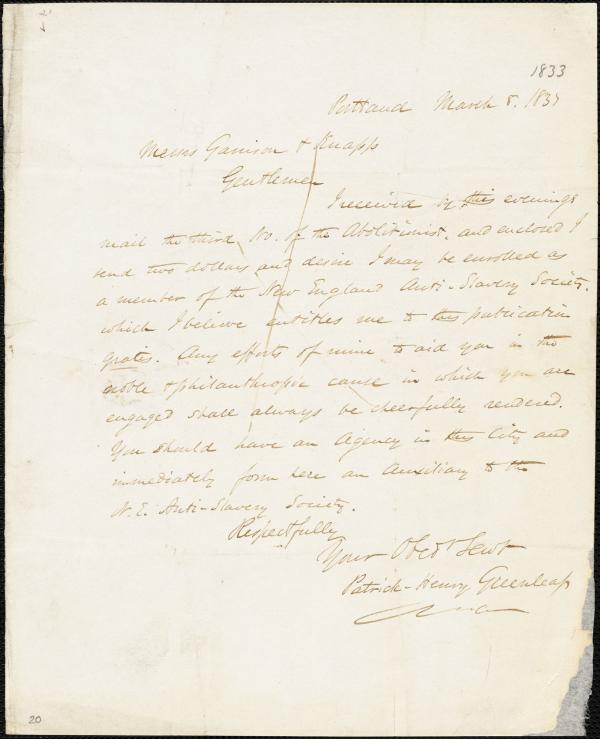 1833
Portland March 8. 1833
Messrs Garrison & Knapp
Gentlemen
I received by this evenings
mail the third No. of the Abolitionist, and enclosed I
send two dollars and desire I may be enrolled as
a member of the New England Anti-Slavery Society.
which I believe entitles me to this publication
gratis. Any efforts of mine to aid you in the
noble & philanthropic cause in which you are
engaged shall always be cheerfully rendered.
You should have an Agency in this City and
immediately form here an Auxiliary to the
N. E. Anti-Slavery Society.
Respectfully
Your Obedt Servt
Patrick-Henry Greenleaf
20